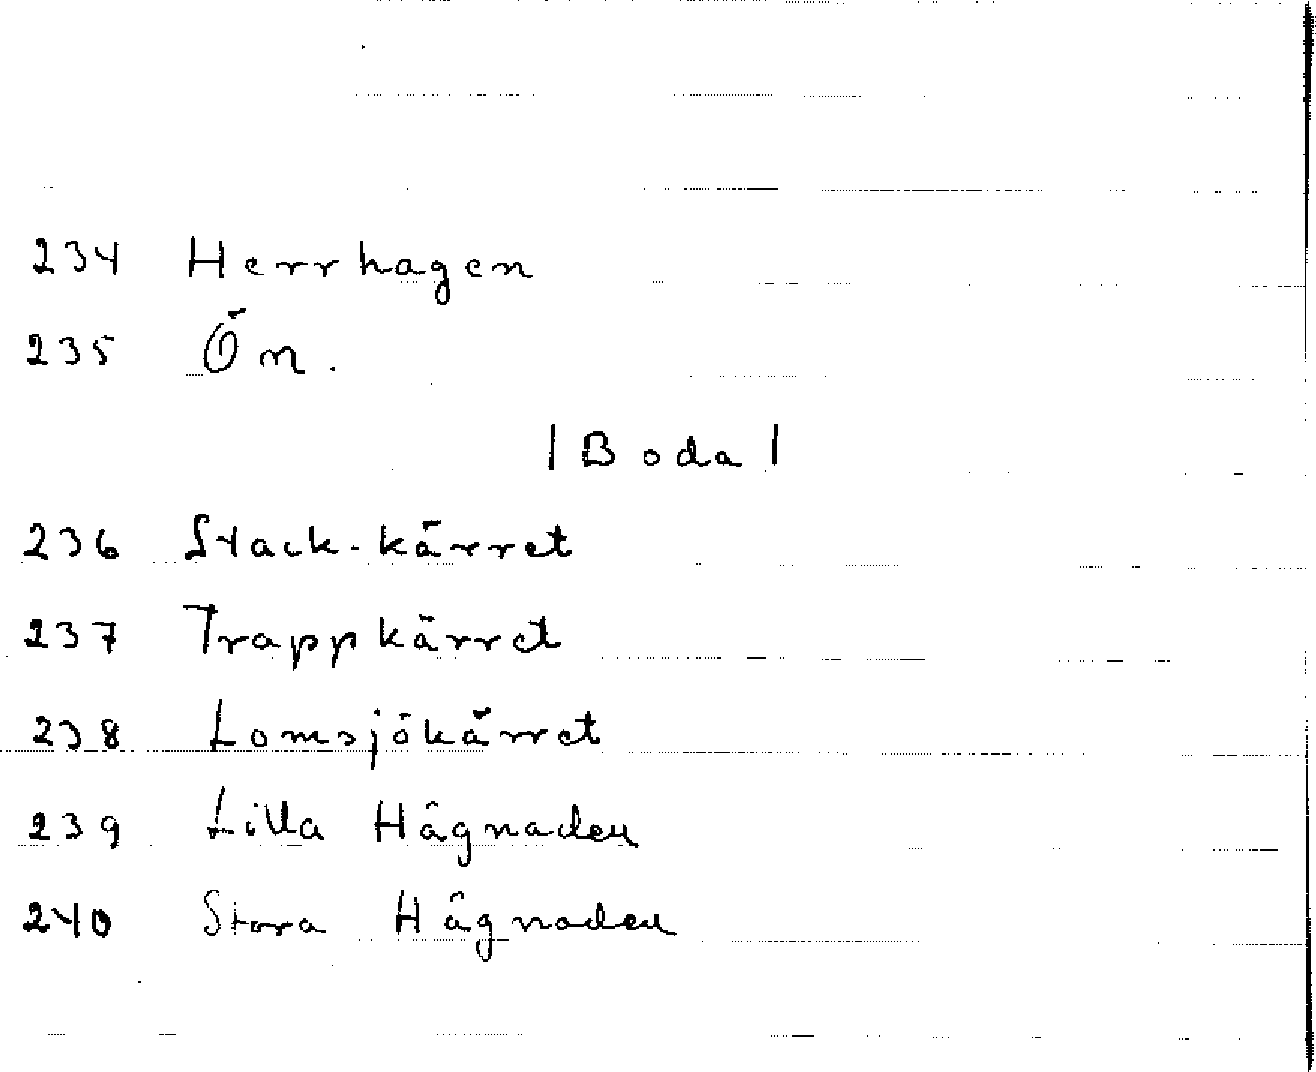 234 Herrhagen
235 Ön.
|Boda|
236 Stack-kärret
237 Trappkärret
238 Lomsjökärret
239 Lilla Hägnaden
240 Stora Hägnaden